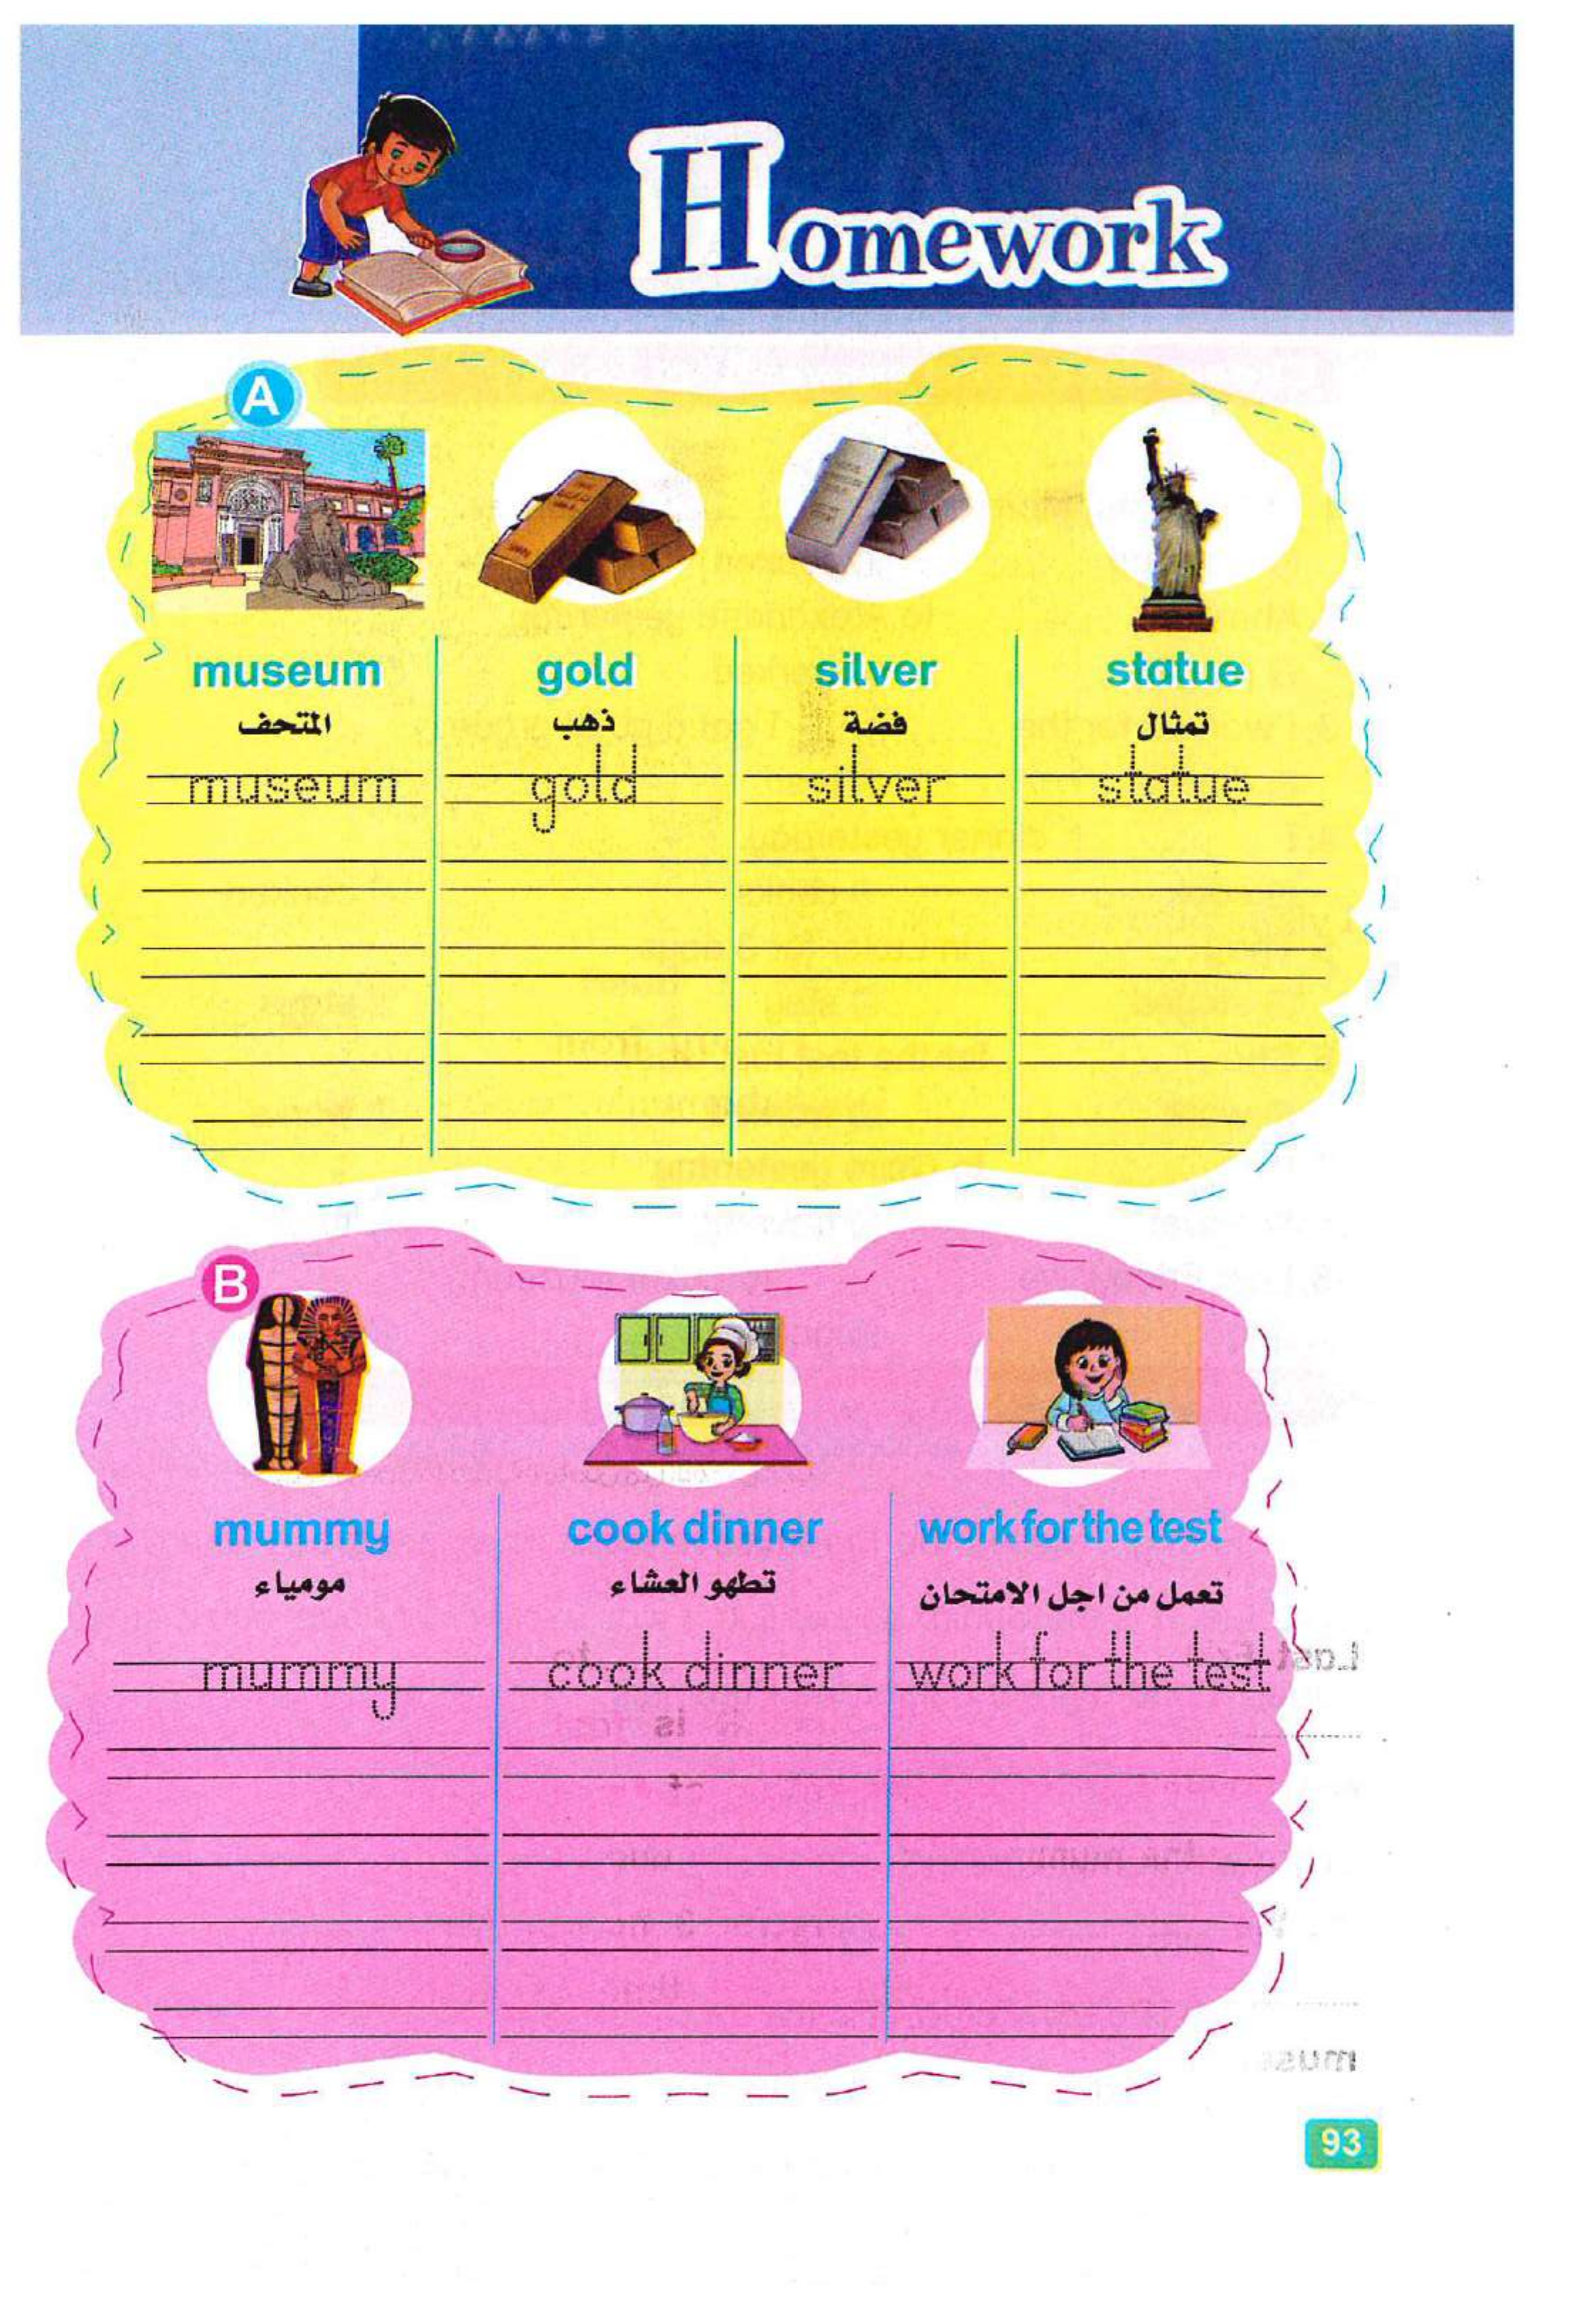 Homework
A
museum gold silver statue
المتحف ذهب فضة تمثال
museum gold silver statue
B
mummy cook dinner work for the test
مومياء تطهو العشاء تعمل من اجل الامتحان
mummy cook dinner work for the test
93